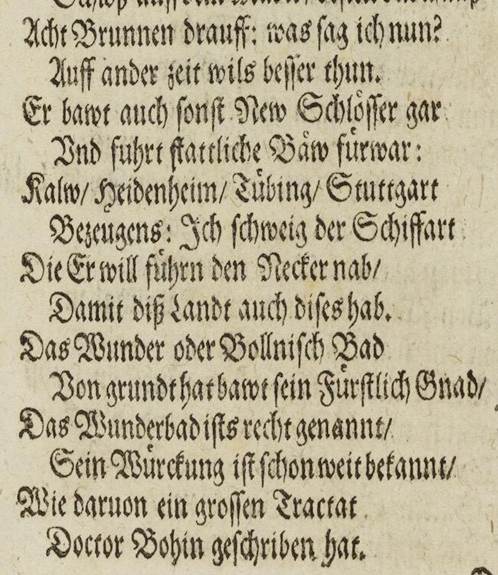 Acht Brunnen drauff: was sag ich nun?
Auff ander zeit wils besser thun.
Er bawt auch sonst New Schlösser gar
Vnd fuhrt stattliche Bäw fürwar:
Kalw/ Heidenheim/ Tübing/ Stuttgart
Bezeugens: Ich schweig der Schiffart
Die Er will führn den Necker nab/
Damit diß Landt auch dises hab.
Das Wunder oder Bollnisch Bad
Von grundt hat bawt sein Fürstlich Gnad/
Das Wunderbad ists recht genannt/
Sein Würckung ist schon weit bekannt/
Wie daruon ein grossen Tractat
Doctor Bohin geschriben hat.